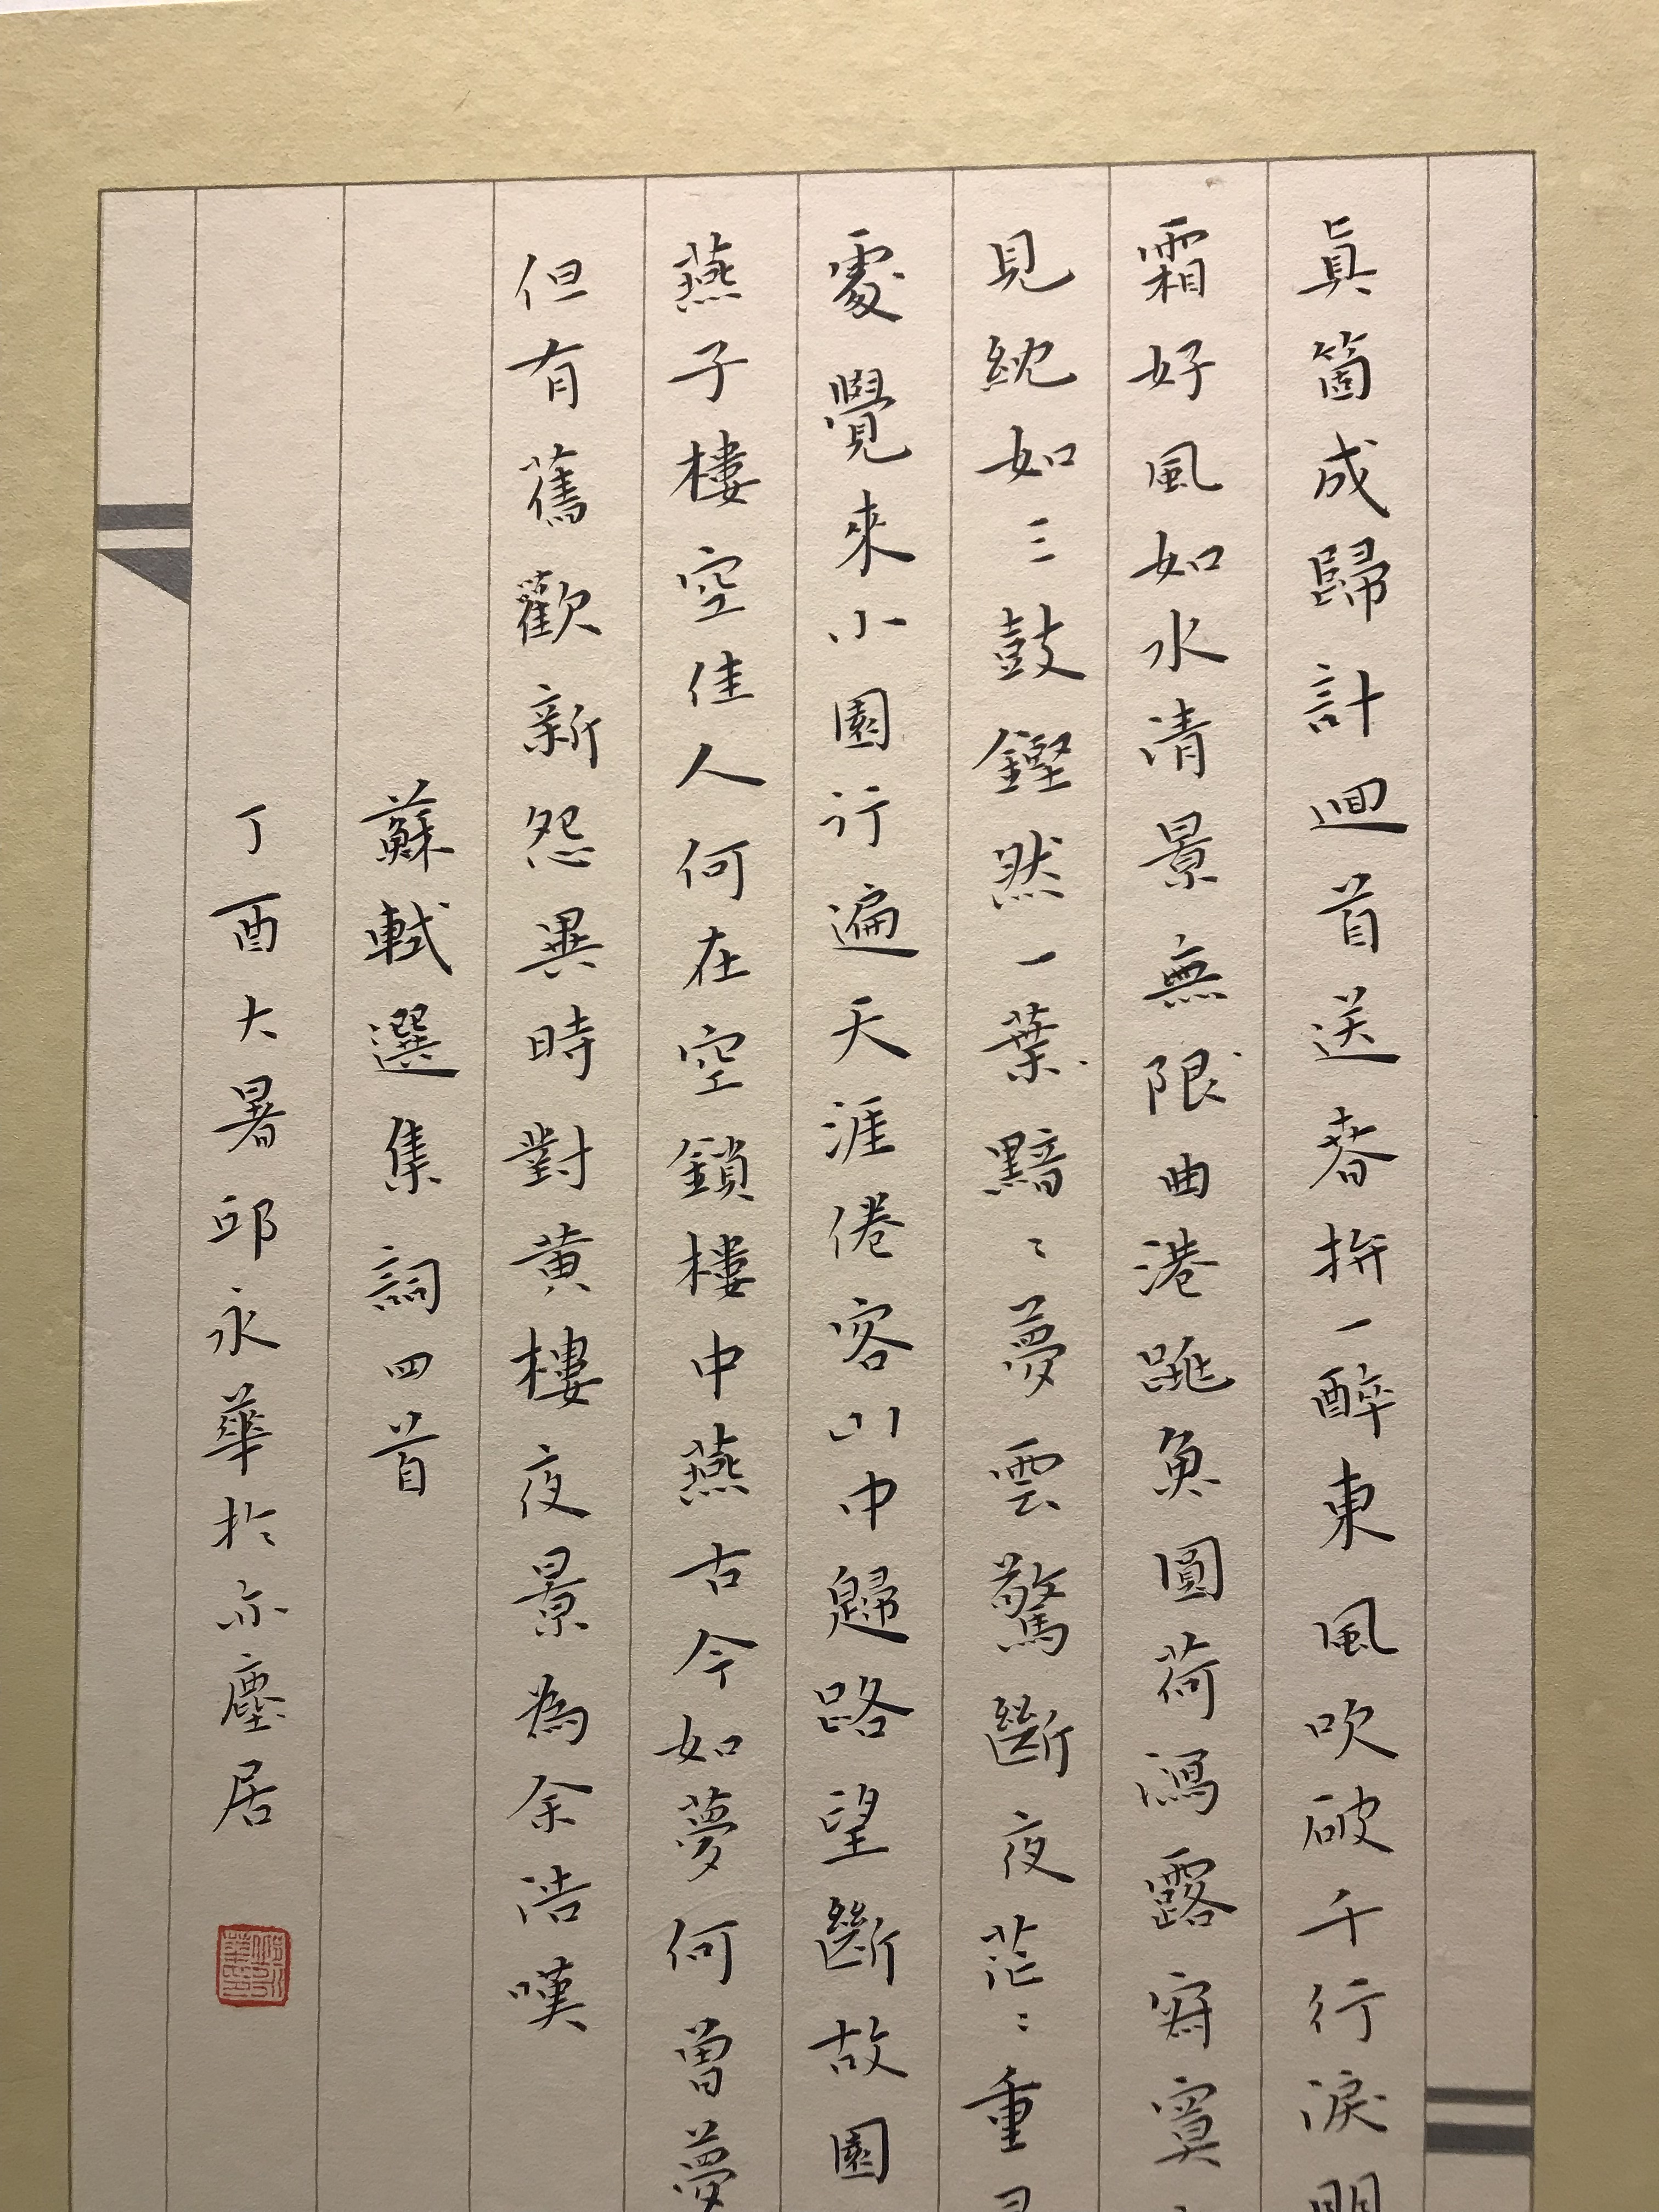 真箇成歸計迴首送春拚一醉東風吹破千行淚明
霜好風如水清景無限曲港跳魚圓荷瀉露寂寞
見紞如三鼓鏗然一葉黯〻夢雲驚斷夜茫〻重尋
處覺來小園行遍天涯倦客山中歸路望斷故園
燕子樓空佳人何在空鎖樓中燕古今如夢何曾夢
但有舊歡新怨異時對黃樓夜景為余浩嘆
蘇軾選集詞四首
丁酉大暑邱永華於亦塵居